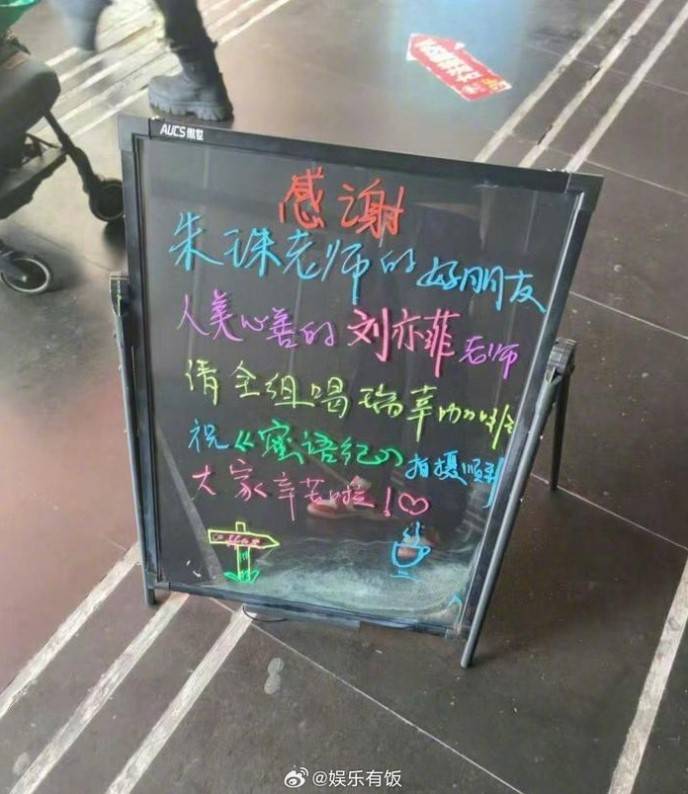 AUCS傲世
感谢
朱珠老师的好朋友
人美心善的刘亦菲老师
请全组喝瑞幸咖啡
祝《蜜语纪》拍摄顺利
大家辛苦啦！♡
@娱乐有饭